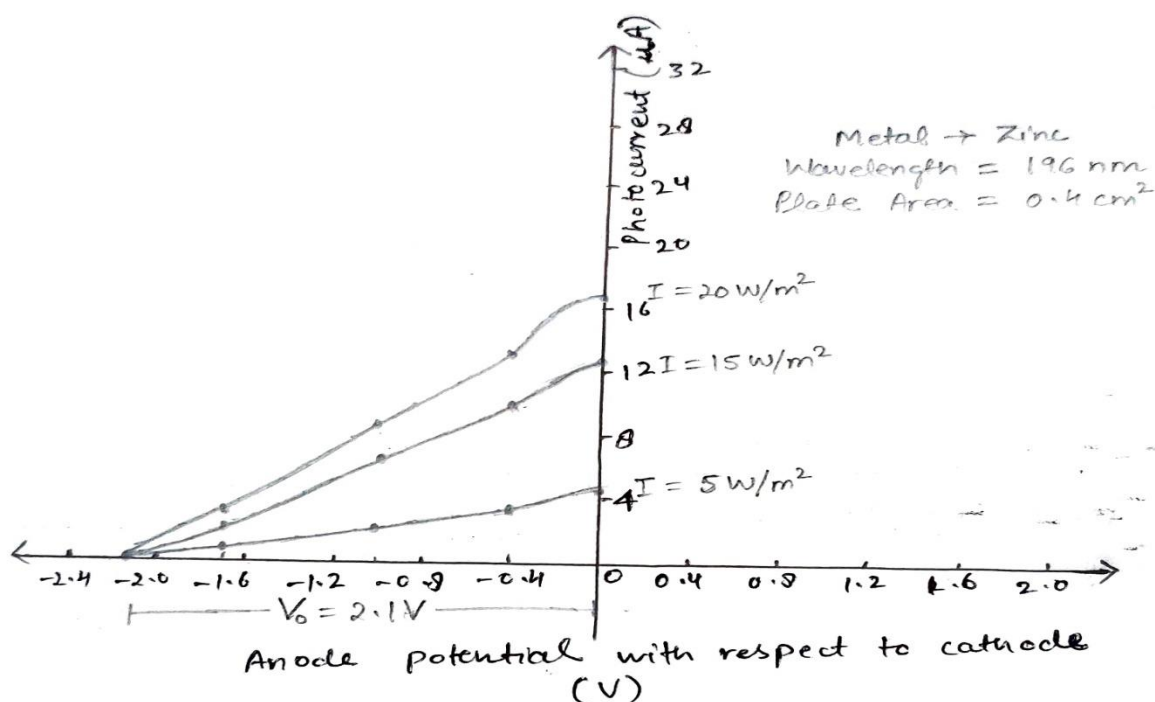 Photocurrent (μA)
32
28
24
20
16
12
8
4
Metal → Zinc
Wavelength = 196 nm
Plate Area = 0.4 cm²
I = 20 W/m²
I = 15 W/m²
I = 5 W/m²
-2.4 -2.0 -1.6 -1.2 -0.8 -0.4 0 0.4 0.8 1.2 1.6 2.0
V₀ = 2.1V
Anode potential with respect to cathode
(V)